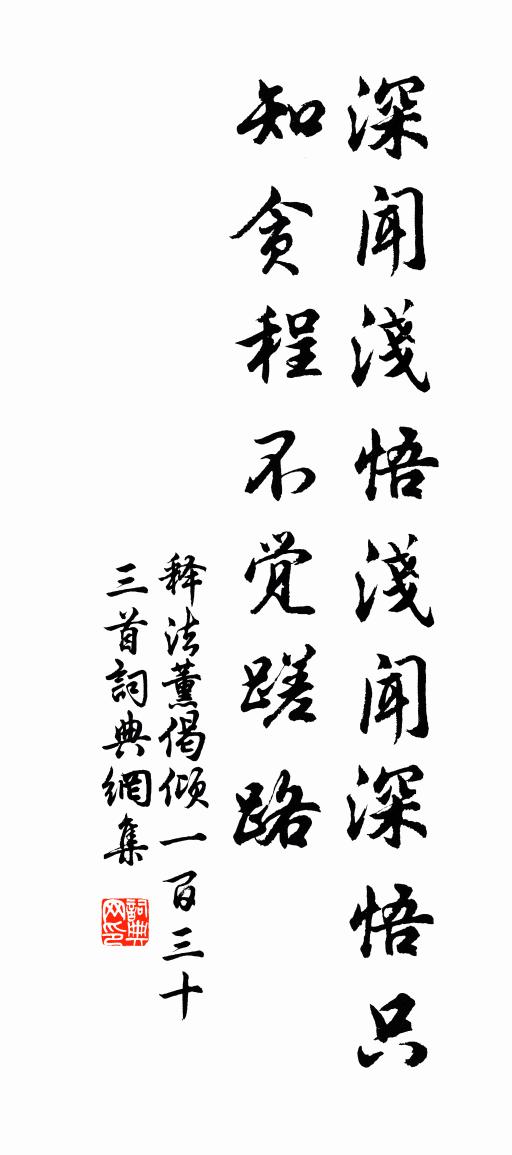 深闻淺悟淺闻深悟只
知贪程不觉蹉路
释法薰偈倾一百三十
三首詞典網集
詞典网印